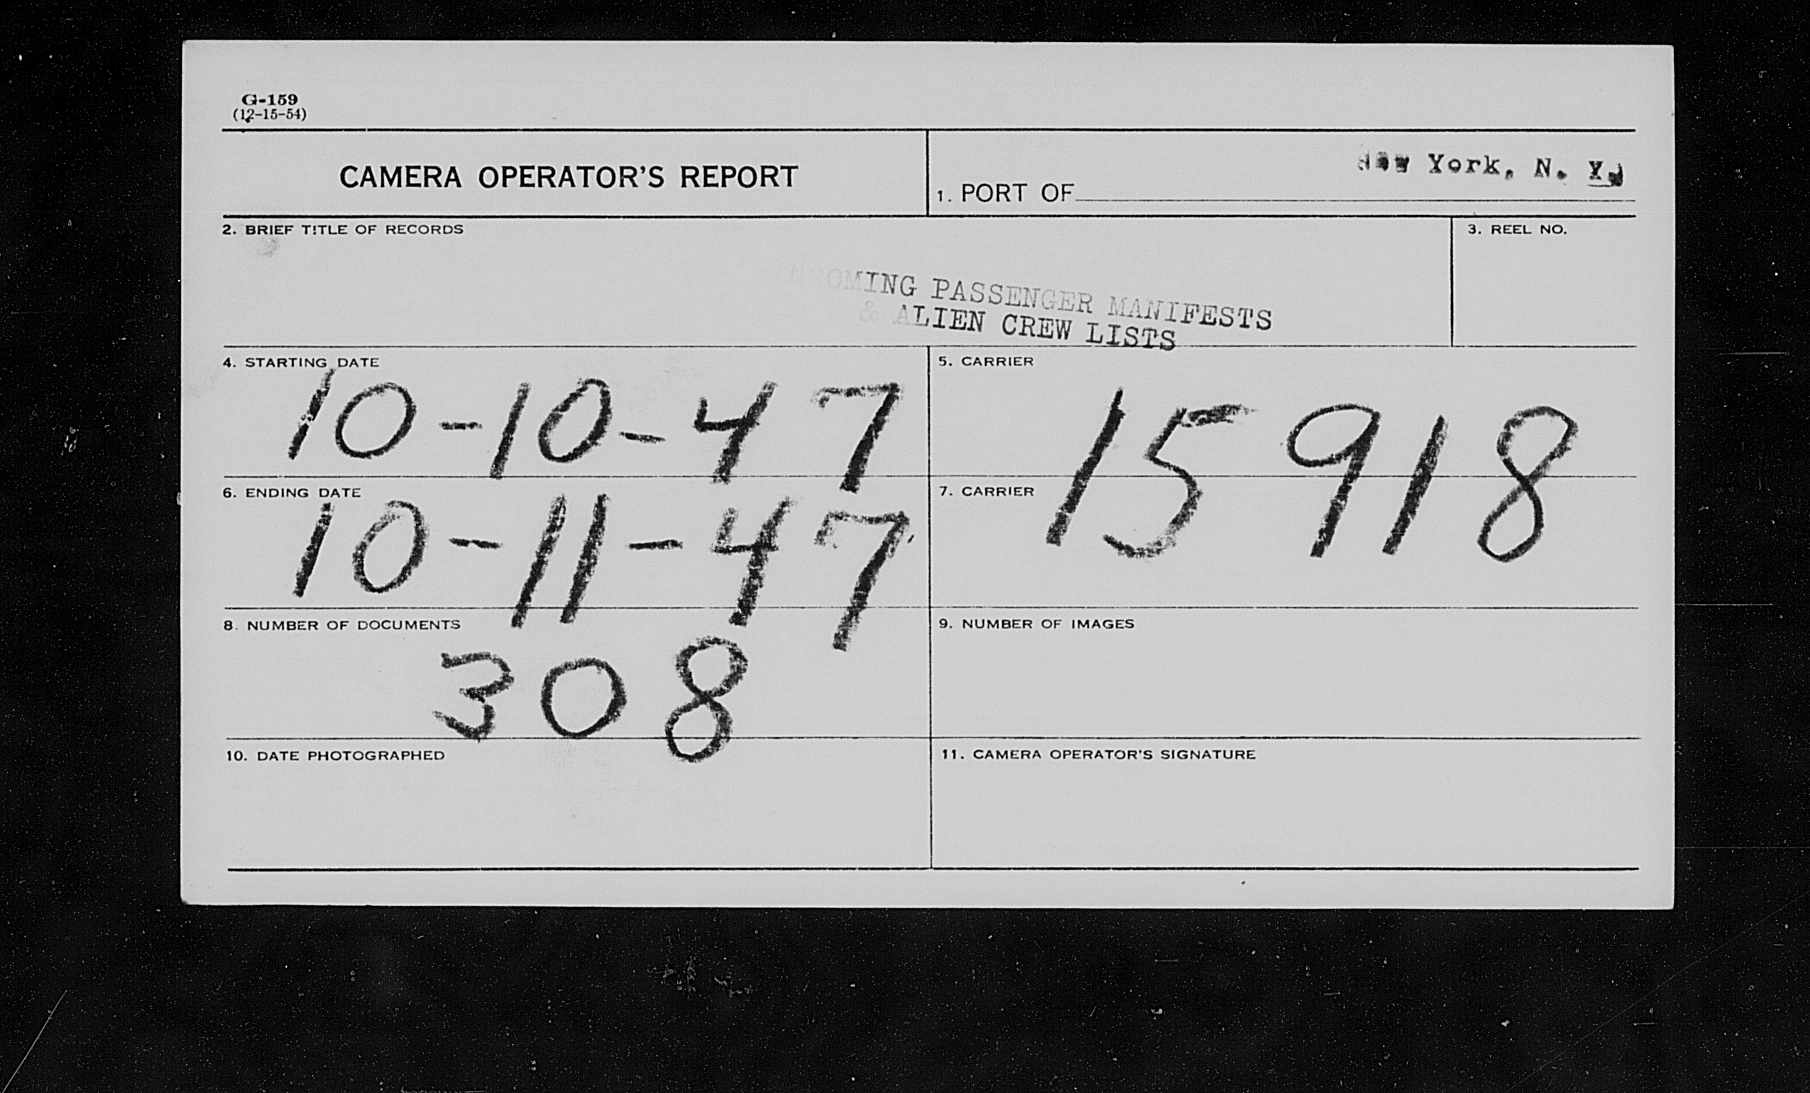 G-159
(12-15-54)
CAMERA OPERATOR'S REPORT
1. PORT OF New York, N. Y.
2. BRIEF TITLE OF RECORDS
3. REEL NO.
INCOMING PASSENGER MANIFESTS
& ALIEN CREW LISTS
4. STARTING DATE
10-10-47
5. CARRIER
15918
6. ENDING DATE
10-11-47
7. CARRIER
8. NUMBER OF DOCUMENTS
308
9. NUMBER OF IMAGES
10. DATE PHOTOGRAPHED
11. CAMERA OPERATOR'S SIGNATURE